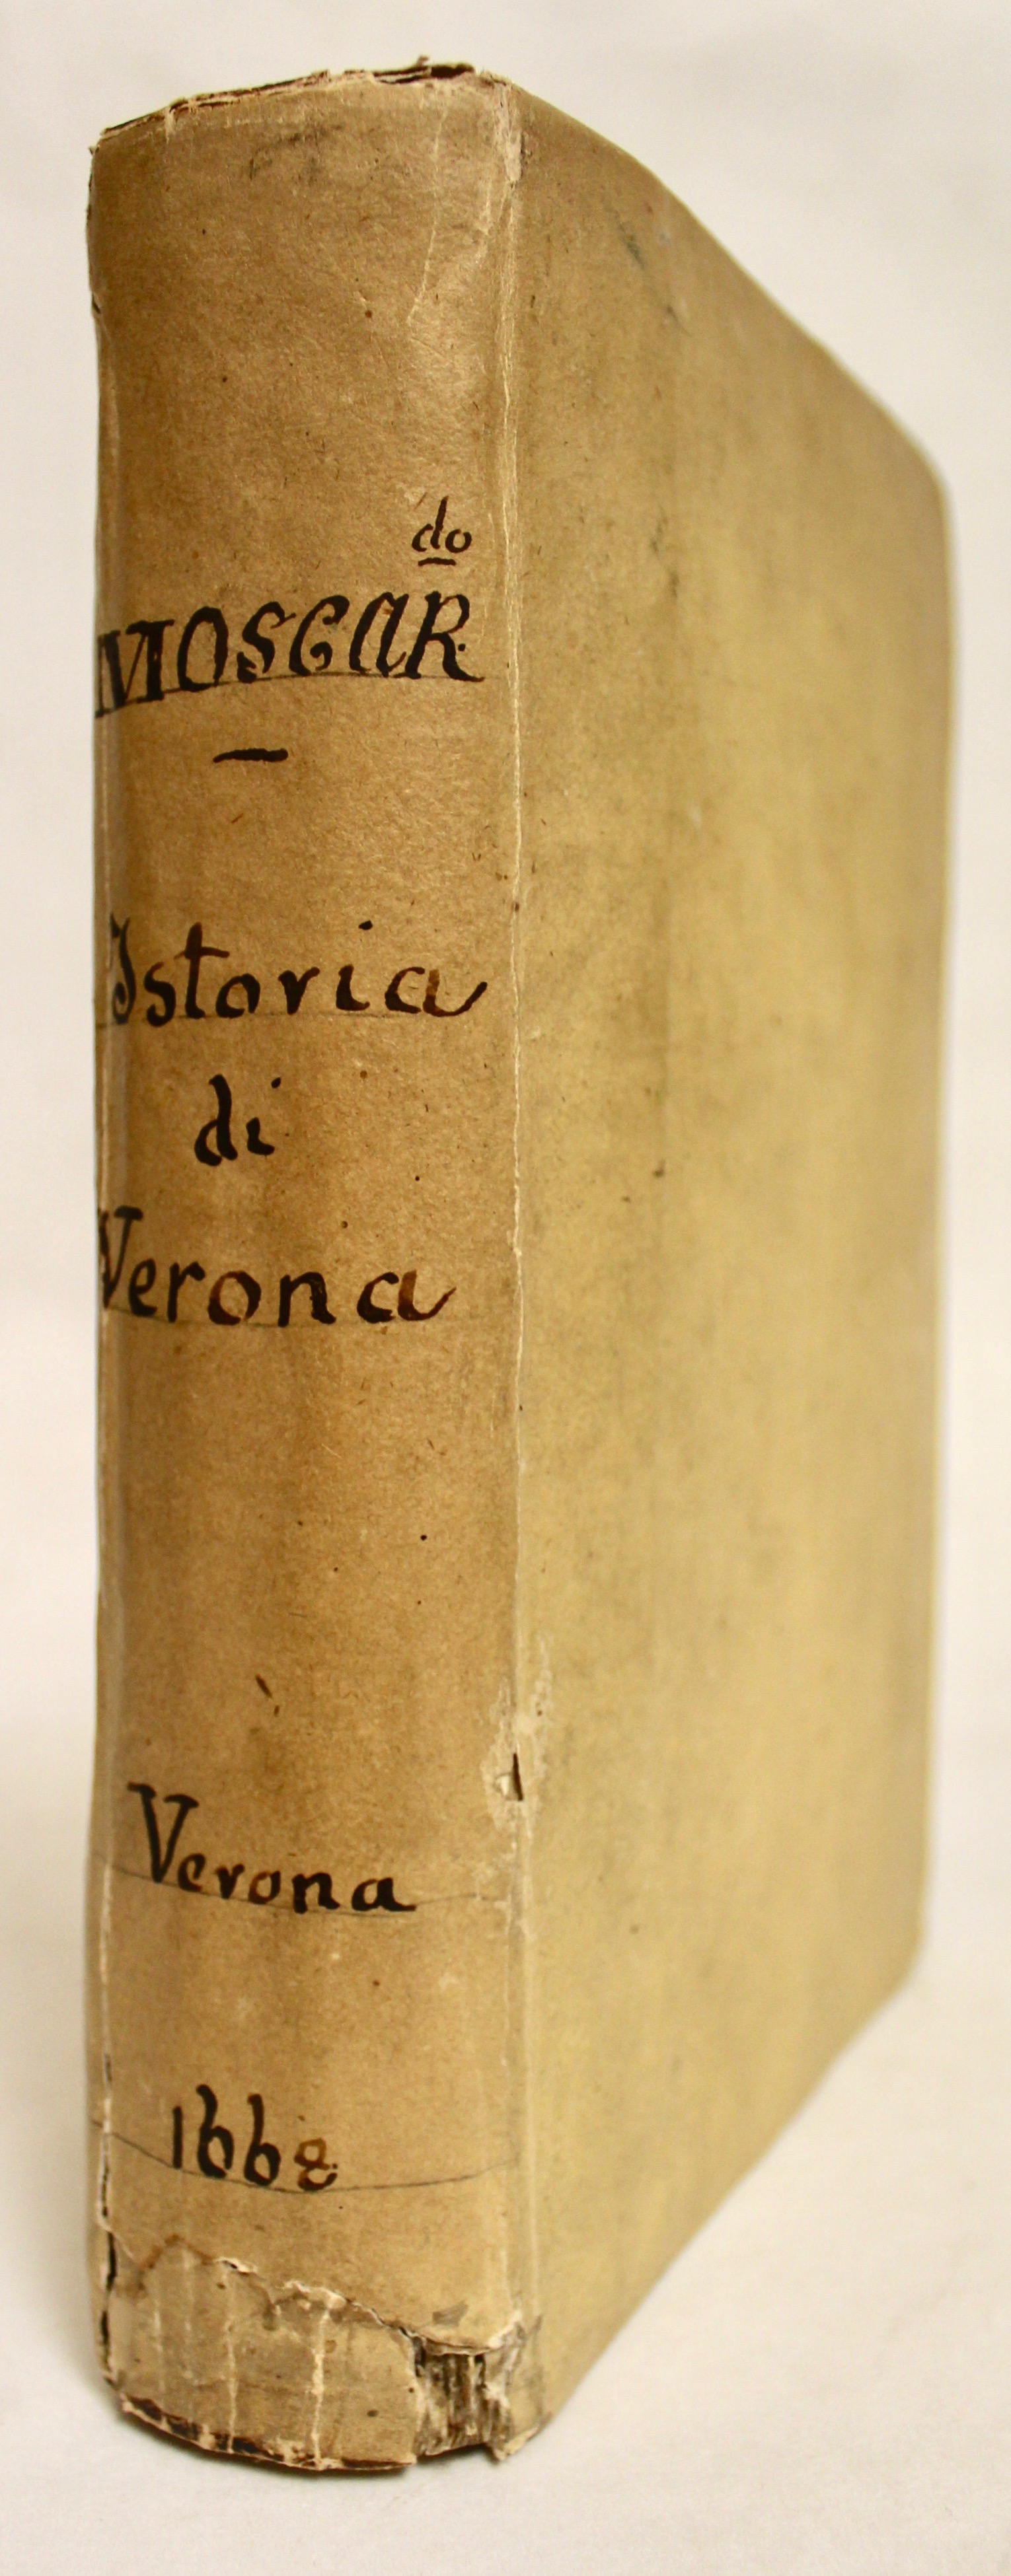 do
MOSCAR
Istoria
di
Verona
Verona
1668